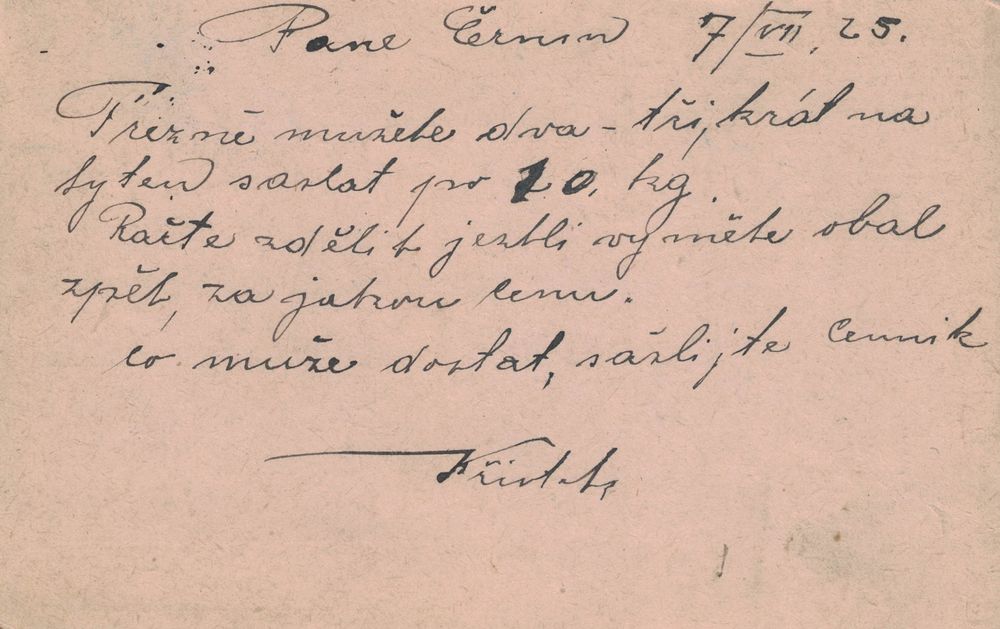 Pane Černin 7/VII, 25.
Třezně mužete dva - tři, krát na
tyten saslat po 10. kg
Račte zdělit jestli vyměte obal
zpět, za jakou cenu.
co muže dostat, sašlijte cennik